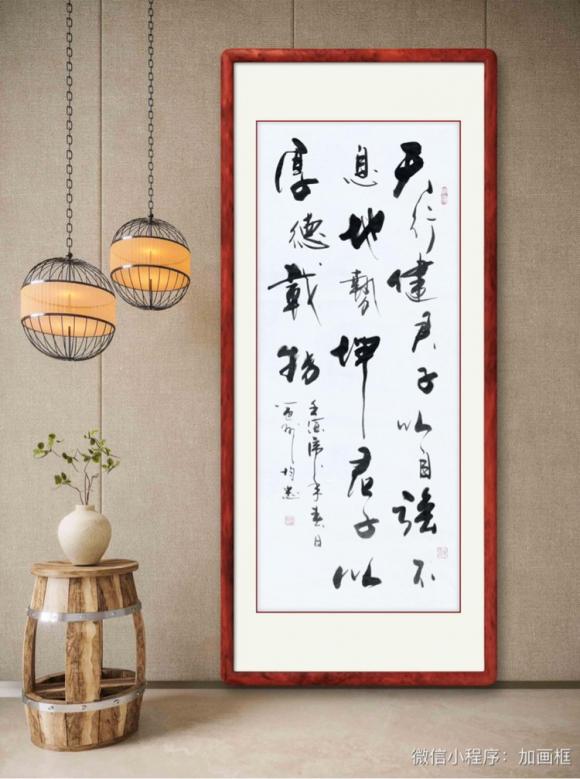 天行健君子以自強不
息地勢坤君子以
厚德載物
壬寅虎年春日
微信小程序：加画框